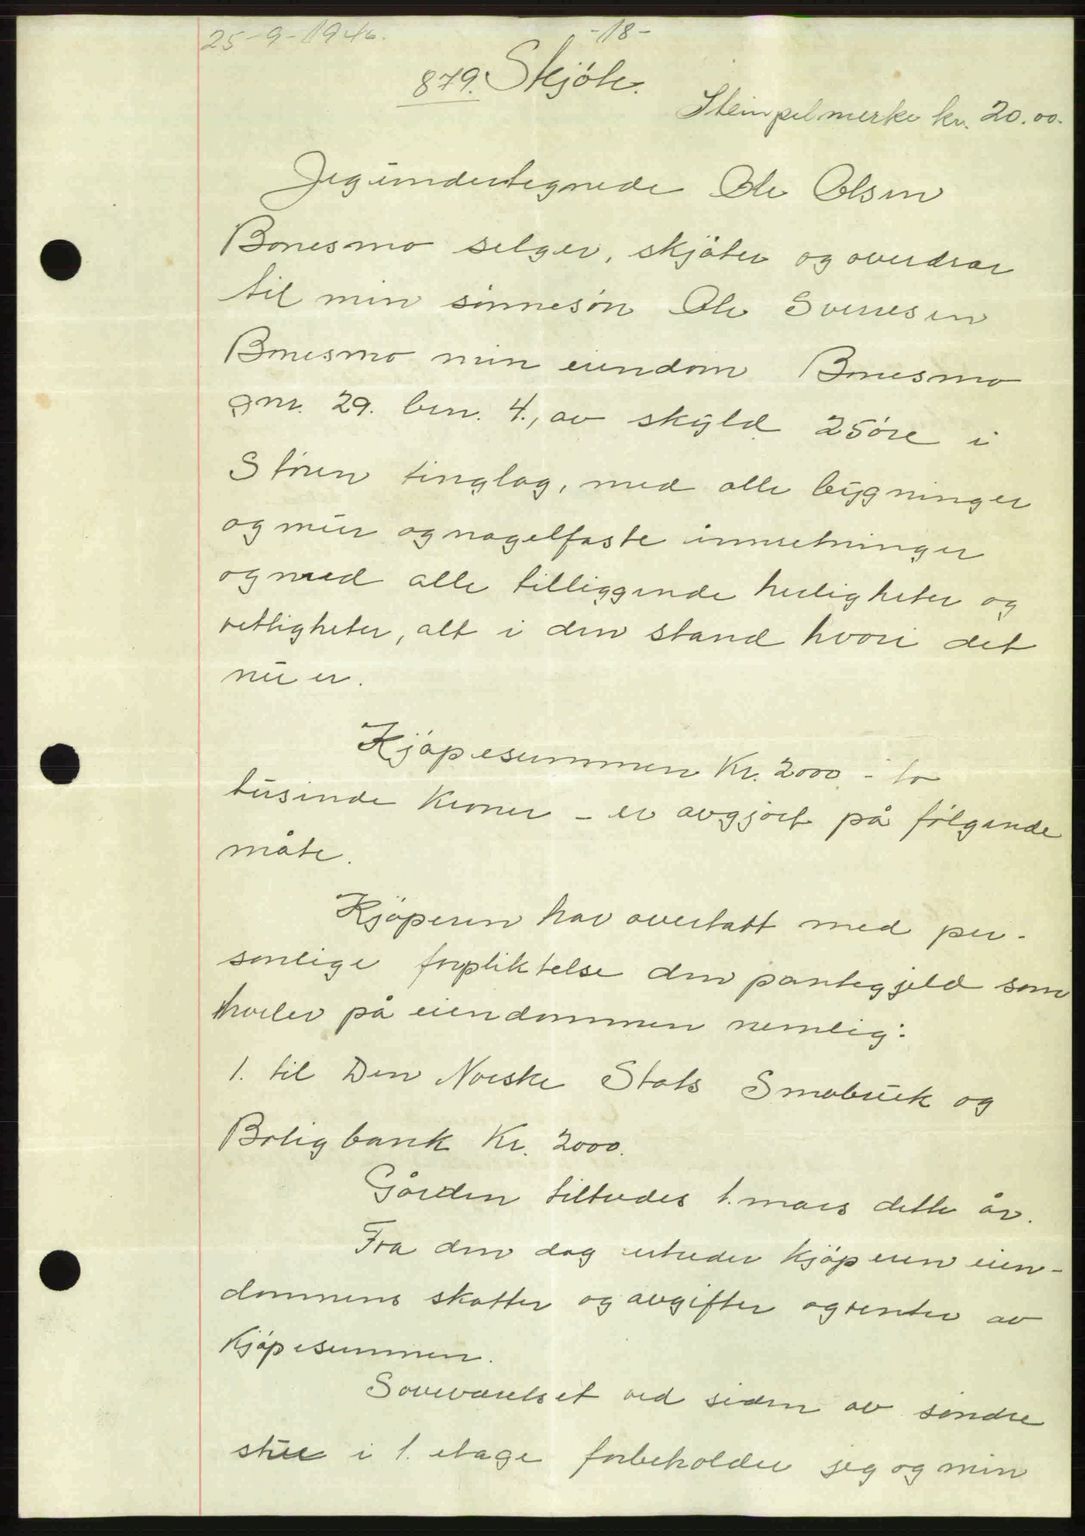 25-9-1946.
-18-
879. Skjöte.
Stempelmerke kr. 20.00.
Jeg undertegnede Ole Olsen
Bonesmo selger, skjöter og overdrar
til min sönnesön Ole Sverresen
Bonesmo min eiendom Bonesmo
gnr. 29. bnr. 4., av skyld 25 öre i
Stören tinglag, med alle bygninger
og mur og nagelfaste innretninger
og med alle tilliggende herligheter og
rettigheter, alt i den stand hvori det
nu er.
Kjöpesummen Kr. 2000 - to
tusinde Kroner - er avgjort på fölgende
måte.
Kjöperen har overtatt med per-
sonlige forpliktelse den pantegjeld som
hviler på eiendommen nemlig:
1. til Den Norske Stats Småbruk og
Boligbank Kr. 2000.
Gården tiltredes 1. mars dette år.
Fra den dag utreder kjöperen eien-
dommens skatter og avgifter og renter av
Kjöpesummen.
Soveværelset ved siden av söndre
stue i 1. etage forbeholder jeg og min